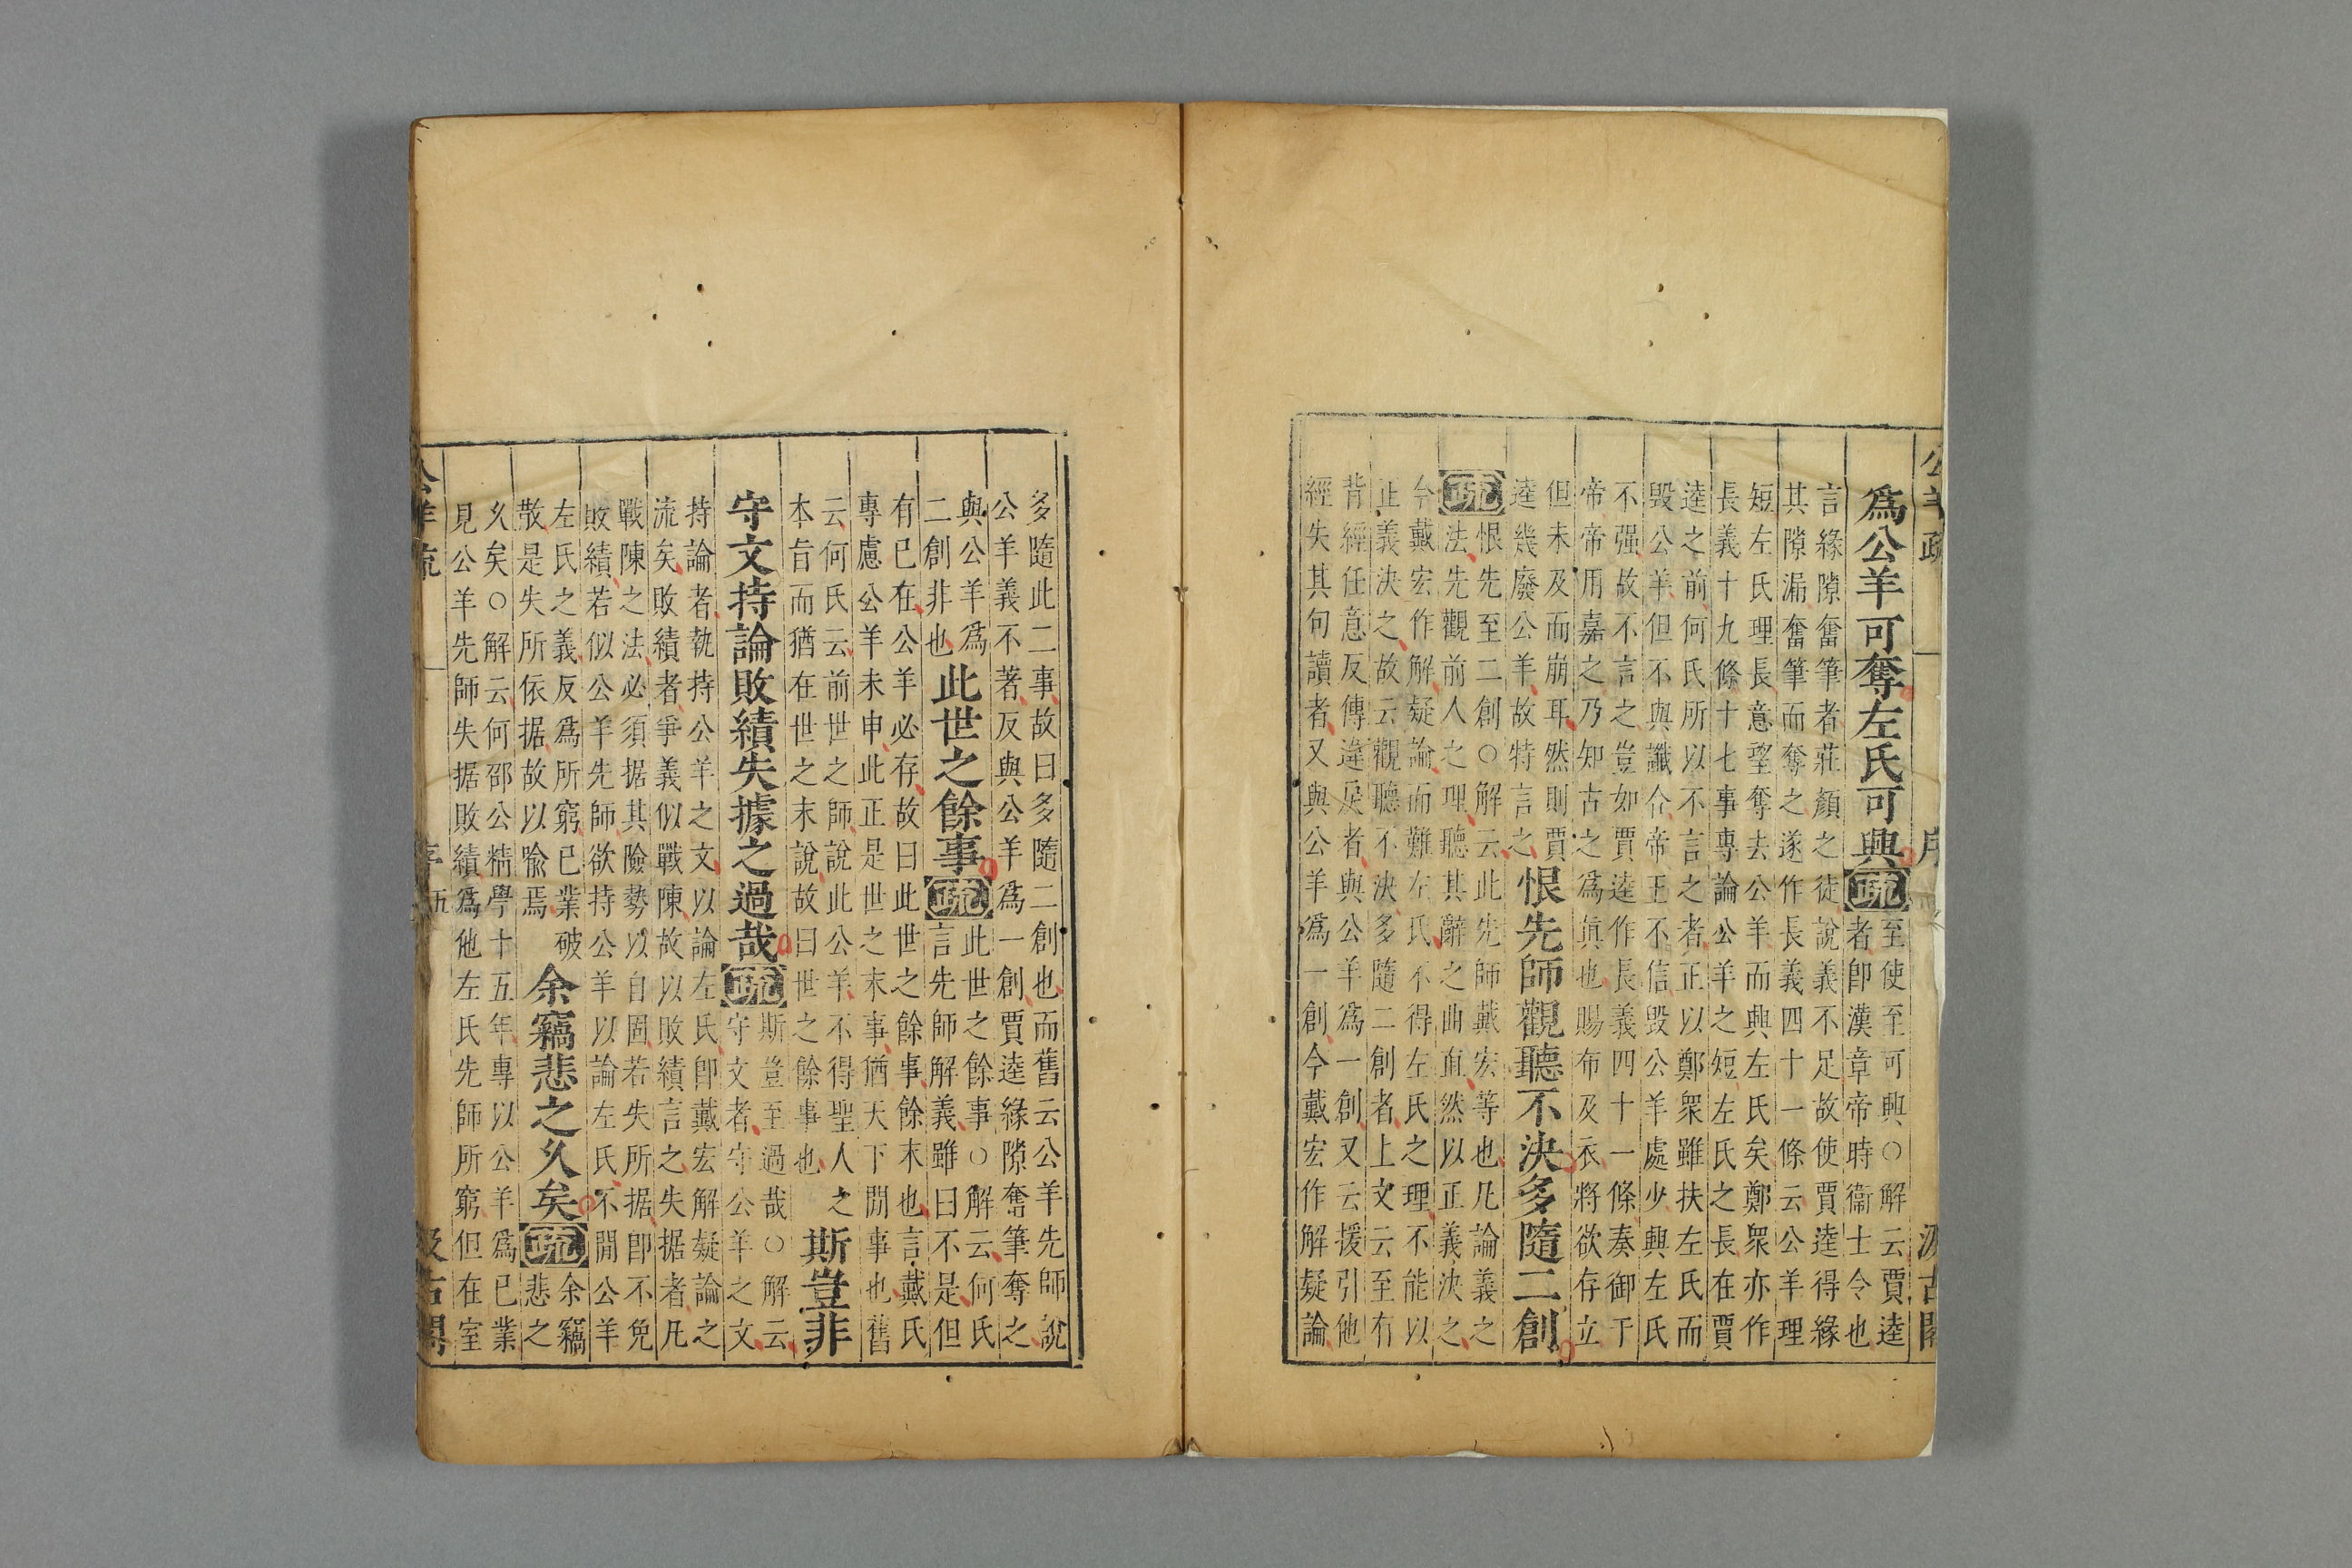 公羊疏 序 汲古閣
爲公羊可奪左氏可興疏至使至可興○解云賈逵
者卽漢章帝時衞士令也
言緣隙奮筆者莊顏之徒說義不足故使賈逵得緣
其隙漏奮筆而奪之遂作長義四十一條云公羊理
短左氏理長意望奪去公羊而興左氏矣鄭衆亦作
長義十九條十七事專論公羊之短左氏之長在賈
逵之前何氏所以不言之者正以鄭衆雖扶左氏而
毀公羊但不與讖合帝王不信毀公羊處少興左氏
不强故不言之豈如賈逵作長義四十一條奏御于
帝帝用嘉之乃知古之爲眞也賜布及衣將欲存立
但未及而崩耳然則賈
逵幾廢公羊故特言之
恨先師觀聽不決多隨二創
疏恨先至二創○解云此先師戴宏等也凡論義之
法先觀前人之理聽其辭之曲直然以正義決之
今戴宏作解疑論而難左氏不得左氏之理不能以
正義決之故云觀聽不決多隨二創者上文云至有
背經任意反傳違戾者與公羊爲一創又云援引他
經失其句讀者又與公羊爲一創今戴宏作解疑論
多隨此二事故曰多隨二創也而舊云公羊先師說
公羊義不著反與公羊爲一創賈逵緣隙奮筆奪之
與公羊爲
二創非也
此世之餘事疏此世之餘事○解云何氏
言先師解義雖曰不是但
有已在公羊必存故曰此世之餘事餘末也言戴氏
專慮公羊未申此正是世之末事猶天下閒事也舊
云何氏云前世之師說此公羊不得聖人之
本旨而猶在世之末說故曰世之餘事也
斯豈非
守文持論敗績失據之過哉疏斯豈至過哉○解云
守文者守公羊之文
持論者執持公羊之文以論左氏卽戴宏解疑論之
流矣敗績者爭義似戰陳故以敗績言之失据者凡
戰陳之法必須据其險勢以自固若失所据卽不免
敗績若似公羊先師欲持公羊以論左氏不閒公羊
左氏之義反爲所窮已業破
散是失所依据故以喩焉
余竊悲之久矣疏余竊
悲之
久矣○解云何邵公精學十五年專以公羊爲已業
見公羊先師失据敗績爲他左氏先師所窮但在室
公羊疏 序 五 汲古閣